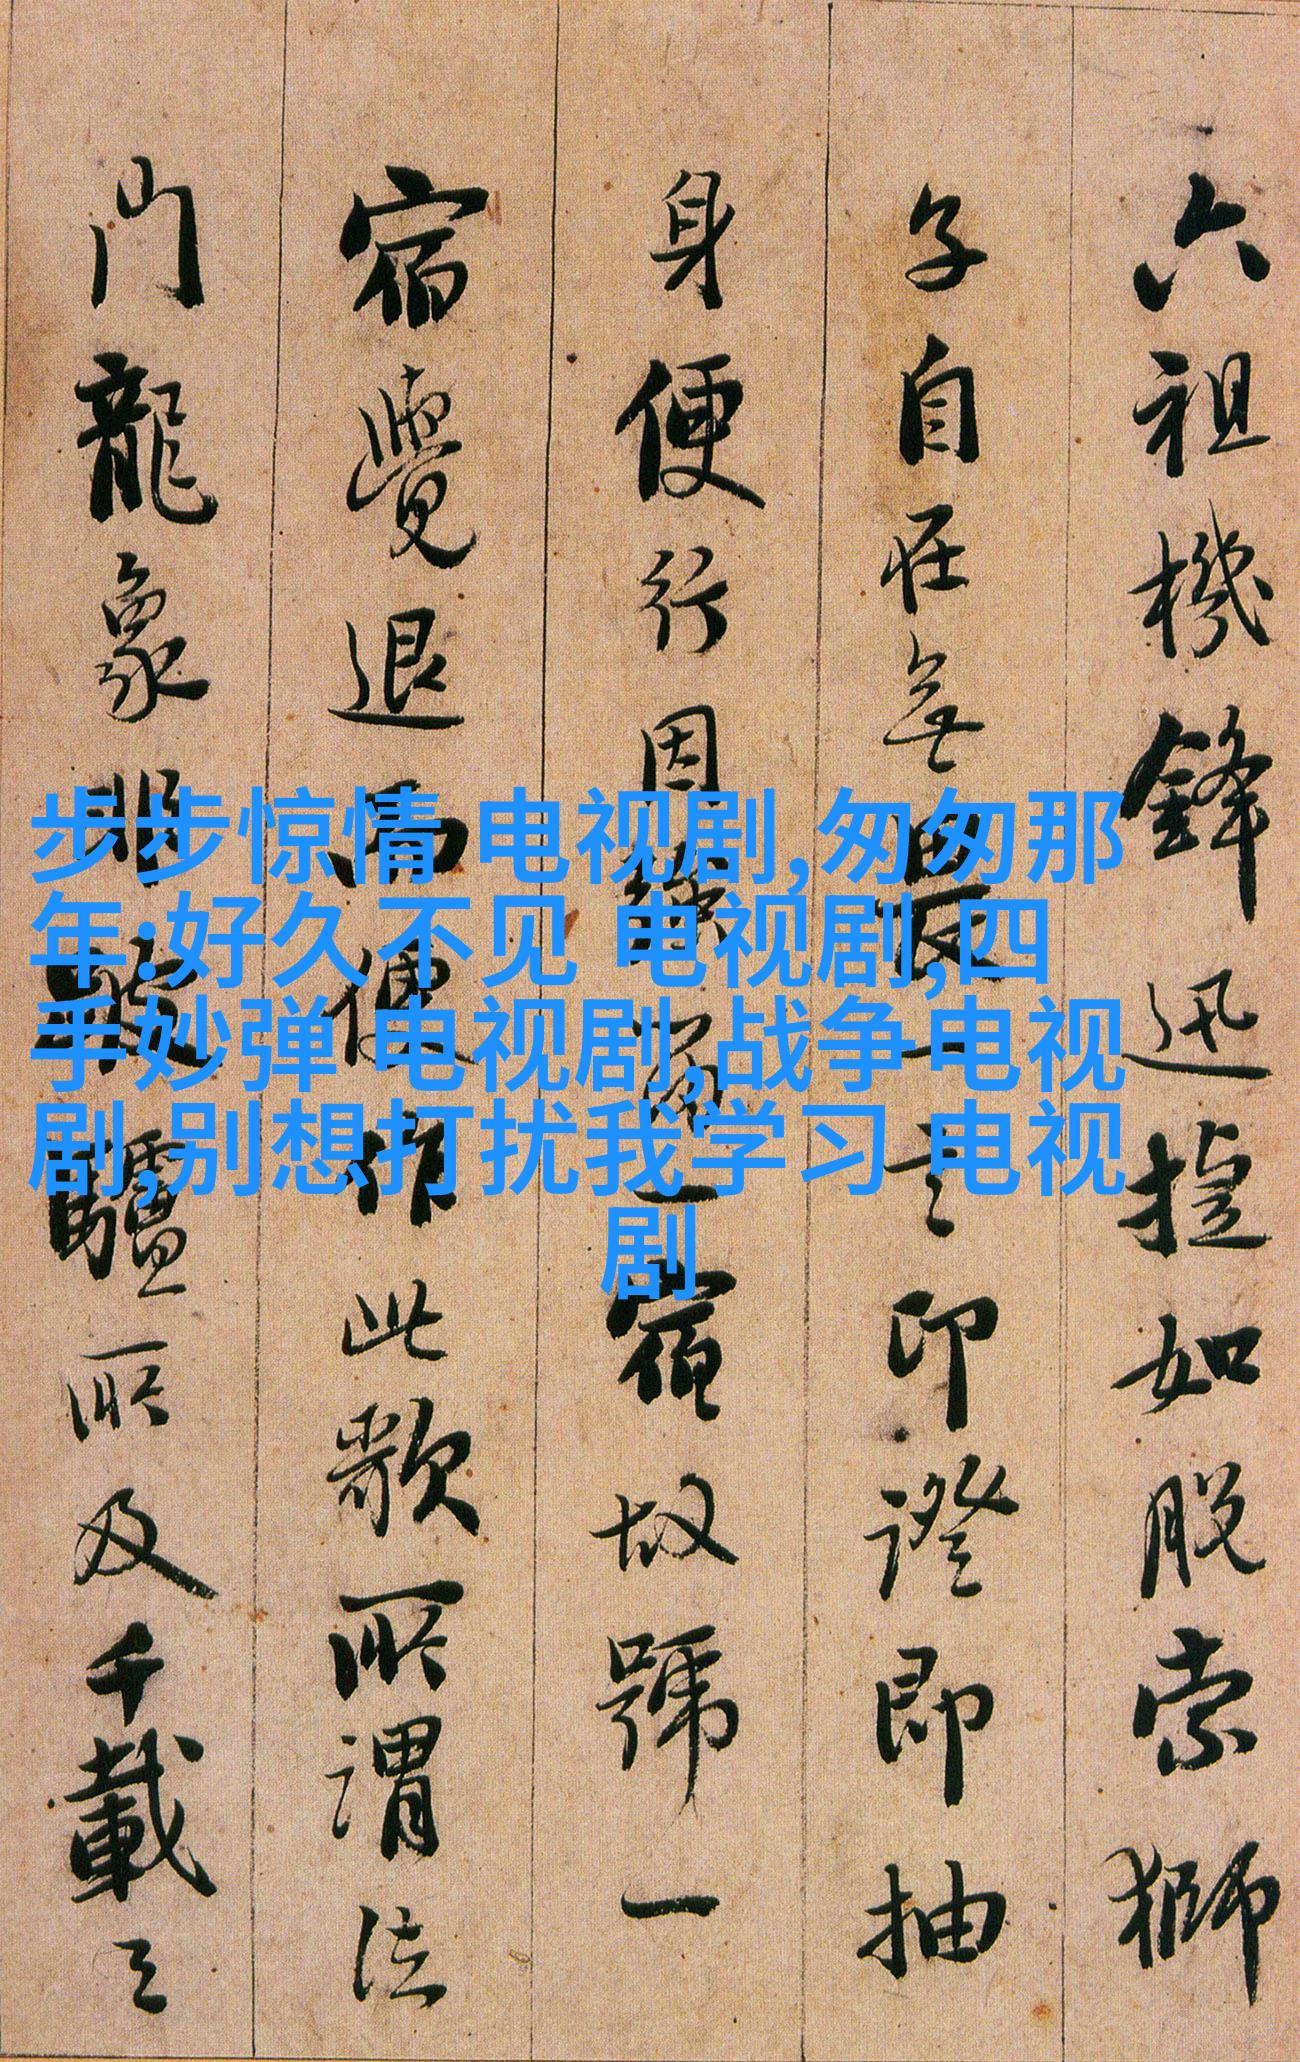 六祖機鋒迅捷如脫索獅
子自在無畏一言印證即抽
身便行因強留一宿故號一
宿覺退而便作此歌所謂法
門龍象非跛驢所及千載之
步步惊情 电视剧,匆匆那
年:好久不见 电视剧,四
手妙弹 电视剧,战争电视
剧,别想打扰我学习 电视
剧